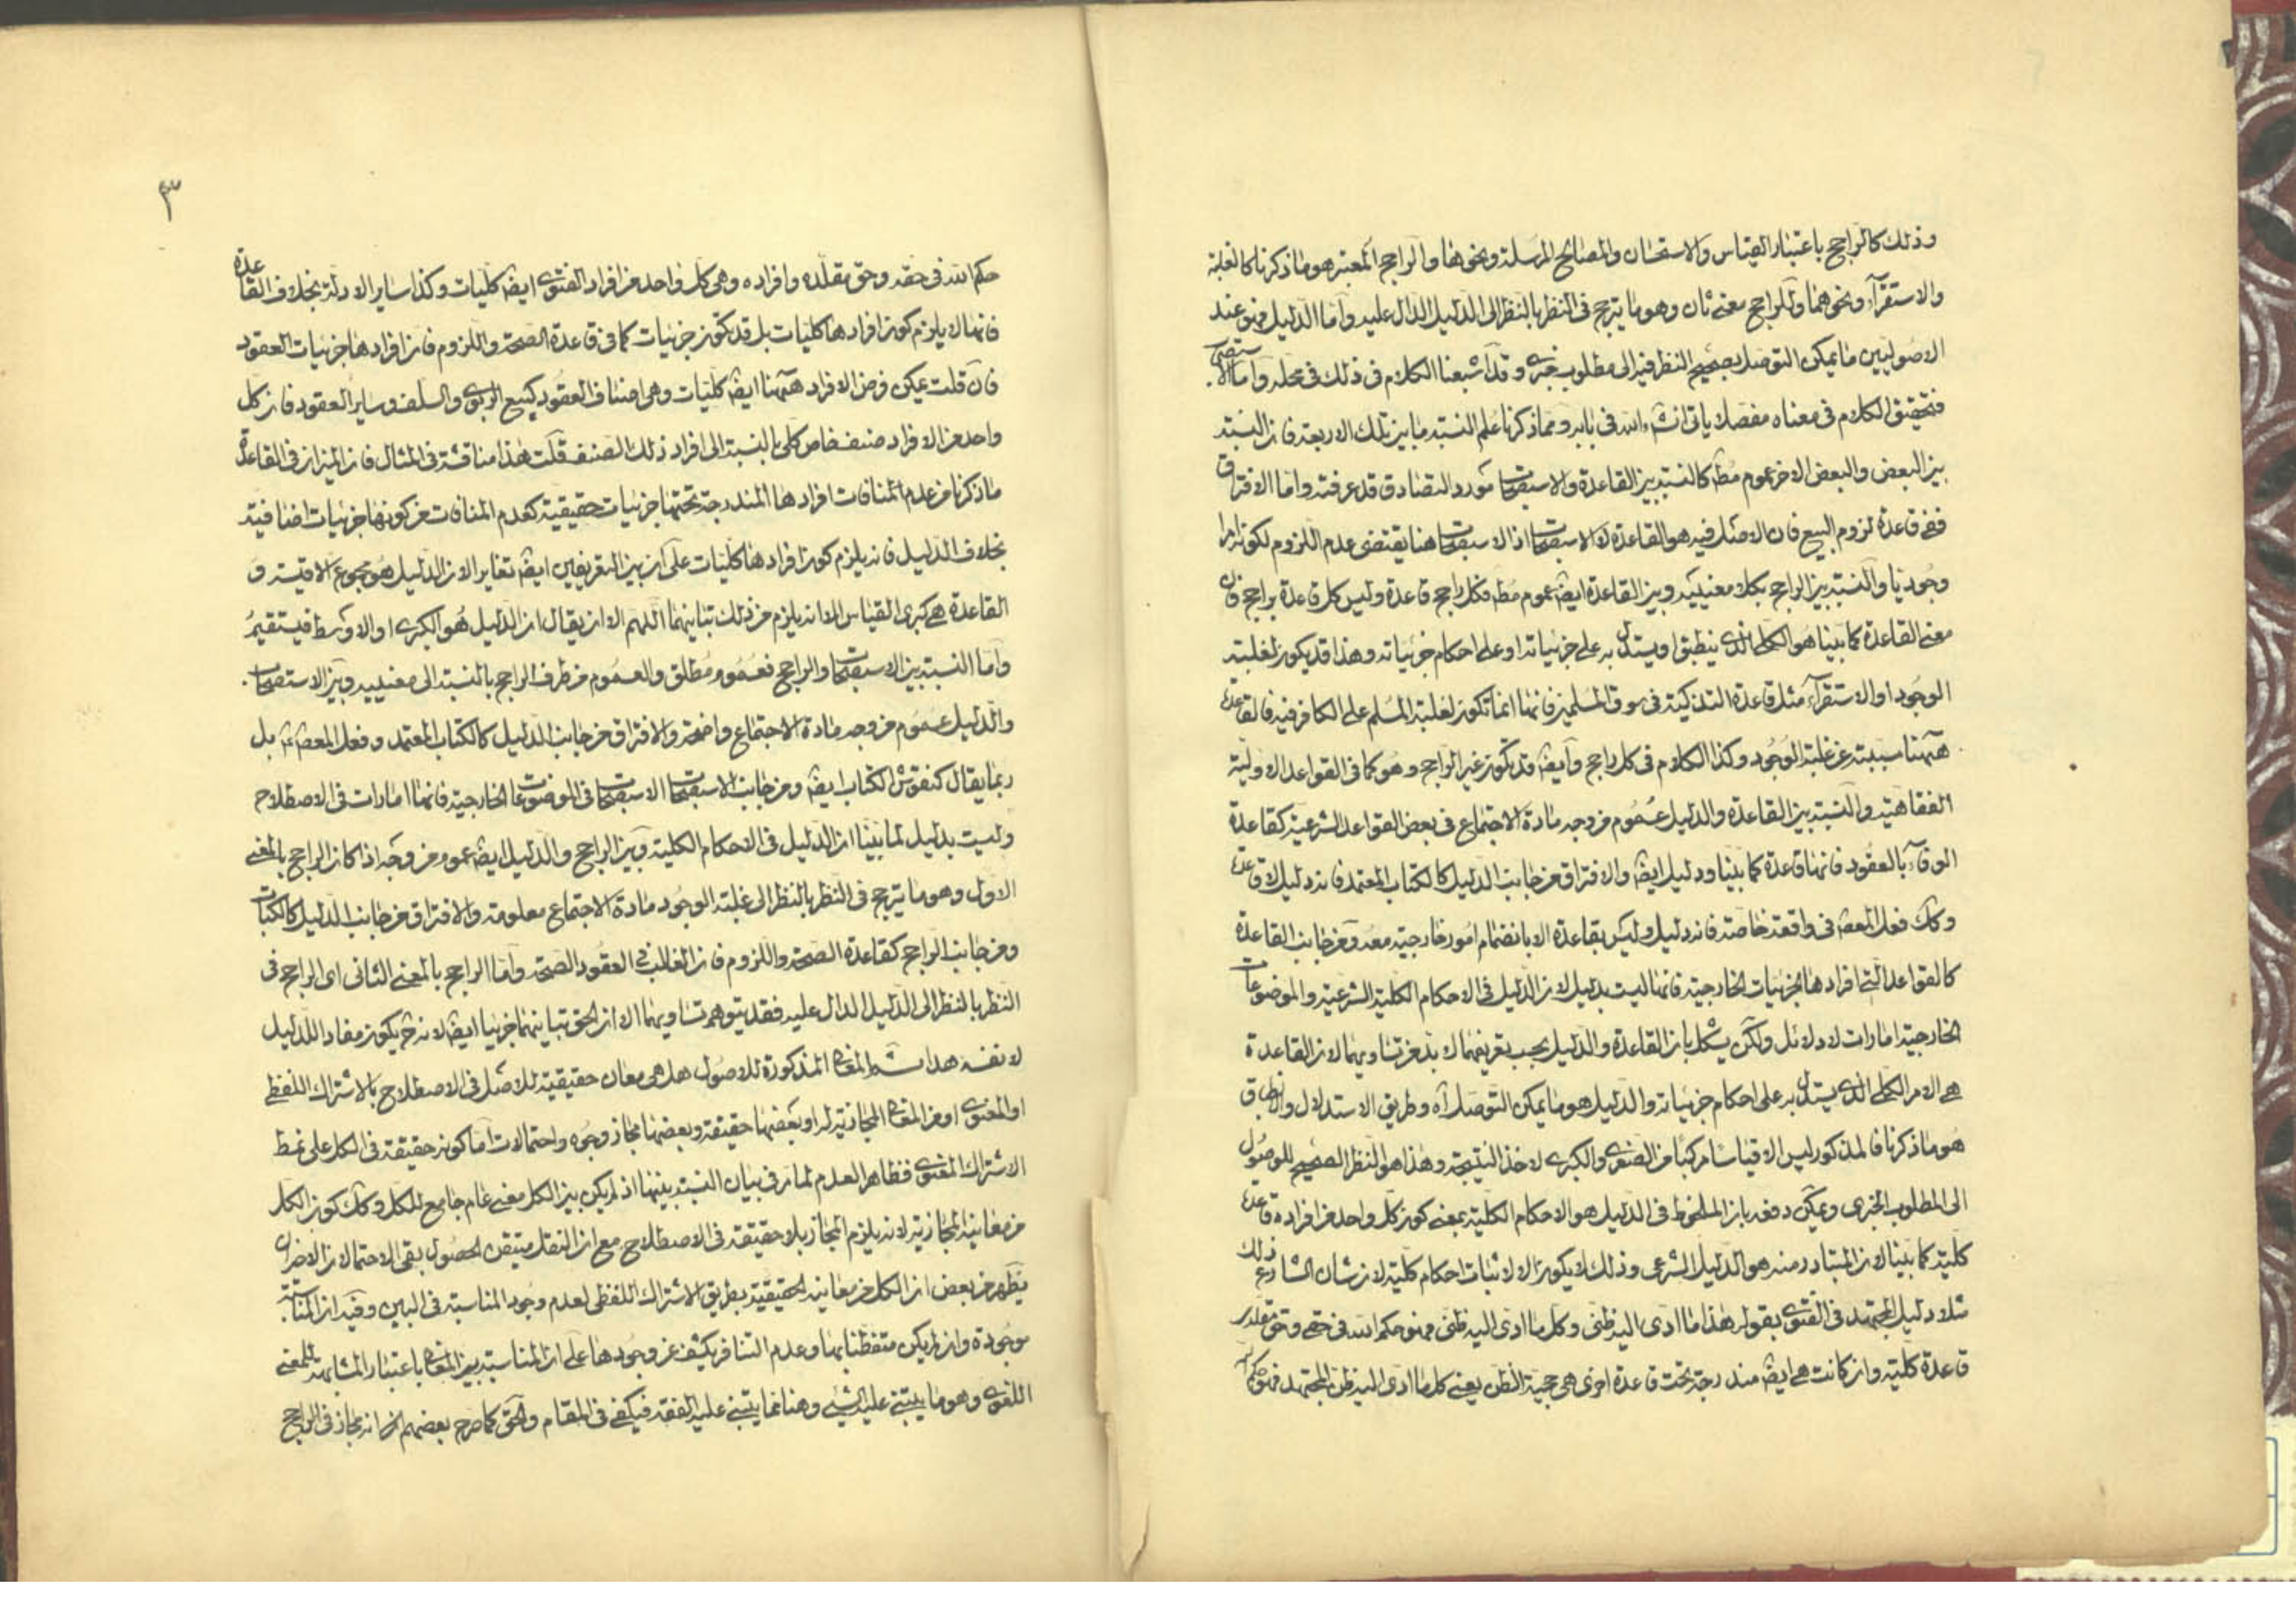 وذلك كالراجح باعتبار القياس والاستحسان والمصالح المرسلة ونحوها والراجح المعتبر هو ما ذكرنا كالغلبة
والاستقرآء ونحوهما وللراجح معنى ثان وهو ما يترجح فى النظر بالنظر الى الدليل الدال عليه وأما الدليل فهو عند
الاصوليين ما يمكن التوصل بصحيح النظر فيه الى مطلوب خبرى وقد أشبعنا الكلام فى ذلك فى محله وأما الاستصحاب
فتحقيق الكلام فى معناه مفصلا ياتى انشاء الله فى بابه ومما ذكرنا علم النسبة ما بين تلك الاربعة فان النسبة
بين البعض والبعض الاخر عموم مط كالنسبة بين القاعدة والاستصحاب مورد التصادق قد عرفته واما الافتراق
ففى قاعدة لزوم البيع فان الاصل فيه هو القاعدة لا الاستصحاب اذ الاستصحاب هنا يقتضى عدم اللزوم لكونه امرا
وجوديا والنسبة بين الراجح بكلا معنييه وبين القاعدة ايضا عموم مط فكل راجح قاعدة وليس كل قاعدة براجح فان
معنى القاعدة كما بينا هو الكلى الذى ينطبق او يستدل به على جزئياته او على احكام جزئياته وهذا قد يكون لغلبة
الوجود او الاستقرآء مثل قاعدة التذكية فى سوق المسلمين فانها انما تكون لغلبة المسلم على الكافر فيه فالقاعدة
ههنا مسببة عن غلبة الوجود وكذا الكلام فى كل راجح وأيضا قد تكون غير الراجح وهو كما فى القواعد الاولية
الفقاهية والنسبة بين القاعدة والدليل عموم من وجه مادة الاجتماع فى بعض القواعد الشرعية كقاعدة
الوفآء بالعقود فانها قاعدة كما بينا ودليل ايضا والافتراق من جانب الدليل كالكتاب المعتمد فانه دليل لا قاعدة
وكك فعل المعصم فى واقعة خاصة فانه دليل وليس بقاعدة الا بانضمام امور خارجية معه ومن جانب القاعدة
كالقواعد التى افرادها الجزئيات الخارجية فانها ليست بدليل لان الدليل فى الاحكام الكلية الشرعية والموضوعات
الخارجية امارات لا دلائل ولكن يشكل بان القاعدة والدليل بحسب تعريفهما لا بد من تساويهما لان القاعدة
هى الامر الكلى الذى يستدل به على احكام جزئياته والدليل هو ما يمكن التوصل آه وطريق الاستدلال والانطباق
هو ما ذكرنا فالمذكور ليس الا قياسا مركبا من الصغرى والكبرى لاخذ النتيجة وهذا هو النظر الصحيح للوصول
الى المطلوب الخبرى ويمكن دفعه بان الملحوظ فى الدليل هو الاحكام الكلية بمعنى كون كل واحد من افراده قاعدة
كلية كما بينا لان المتبادر منه هو الدليل الشرعى وذلك لا يكون الا لاثبات احكام كلية لان شان الشارع ذلك
مثلا دليل المجتهد فى الفتوى بقوله هذا ما ادى اليه ظنى وكل ما ادى اليه ظنى فهو حكم الله فى حقى وحق مقلدى
قاعدة كلية وان كانت هى ايضا مندرجة تحت قاعدة اخرى هى حجية الظن يعنى كل ما ادى اليه ظن المجتهد فهو حكم
٣
حكم الله فى حقه وحق مقلده وافراده وهى كل واحد من افراد الفتوى ايضا كليات وكذا ساير الادلة بخلاف القاعدة
فانها لا يلزم كون افرادها كليات بل قد تكون جزئيات كما فى قاعدة الصحة واللزوم فان افرادها جزئيات العقود
فان قلت يمكن فرض الافراد ههنا ايضا كليات وهى اصناف العقود كبيع الربوى والسلف وساير العقود فان كل
واحد من الافراد صنف خاص كلى بالنسبة الى افراد ذلك الصنف قلت هذا مناقشة فى المثال فان الميزان فى القاعدة
ما ذكرنا من عدم المنافات افرادها المندرجة تحتها جزئيات حقيقية كعدم المنافات عن كونها جزئيات اضافية
بخلاف الدليل فانه يلزم كون افرادها كليات على ان بين التعريفين ايضا تغاير الان الدليل هو مجموع الاقيسة و
القاعدة هى كبرى القياس الا انه يلزم من ذلك تباينهما اللهم الا ان يقال ان الدليل هو الكبرى او الاوسط فيستقيم
واما النسبة بين الاستصحاب والراجح فعموم مطلق والعموم من طرف الراجح بالنسبة الى معنييه وبين الاستصحاب
والدليل عموم من وجه مادة الاجتماع واضحة والافتراق من جانب الدليل كالكتاب المعتمد وفعل المعصم بل
ربما يقال كنقوش الكتاب ايضا ومن جانب الاستصحاب الاستصحاب فى الموضوعات الخارجية فانها امارات فى الاصطلاح
وليست بدليل لما بينا ان الدليل فى الاحكام الكلية وبين الراجح والدليل ايضا عموم من وجه اذا كان الراجح بالمعنى
الاول وهو ما يترجح فى النظر بالنظر الى غلبة الوجود مادة الاجتماع معلومة والافتراق من جانب الدليل كالكتاب
ومن جانب الراجح كقاعدة الصحة واللزوم فان الغالب فى العقود الصحة واما الراجح بالمعنى الثانى اى الراجح فى
النظر بالنظر الى الدليل الدال عليه فقد يتوهم تساويهما الا ان الحق تباينهما جزئيا ايضا لانه ح يكون مفاد الدليل
لا نفسه هذا المعانى المذكورة للاصول هل هى معان حقيقية للاصل فى الاصطلاح بالاشتراك اللفظى
او المعنوى او من المعانى المجازية له او بعضها حقيقة وبعضها مجاز وجوه واحتمالات اما كونه حقيقة فى الكل على نمط
الاشتراك المعنوى فظاهر العدم لما مر فى بيان النسبة بينها اذ لم يكن بين الكل معنى عام جامع للكل وكك كون الكل
من معانيه المجازية لانه يلزم المجاز بلا حقيقة فى الاصطلاح مع ان النقل متيقن الحصول بقى الاحتمالان الاخران
يظهر من بعض ان الكل من معانيه الحقيقية بطريق الاشتراك اللفظى لعدم وجود المناسبة فى البين وفيه ان المناسبة
موجودة وان لم يكن متفطنا بها وعدم التنافر يكشف عن وجودها على ان المناسبة بين المعانى باعتبار المشابهة للمعنى
اللغوى وهو ما يبتنى عليه الشئ وهنا انما يبتنى عليه الفقه فيكفى فى المقام والحق كما صرح بعضهم انه مجاز فى الراجح